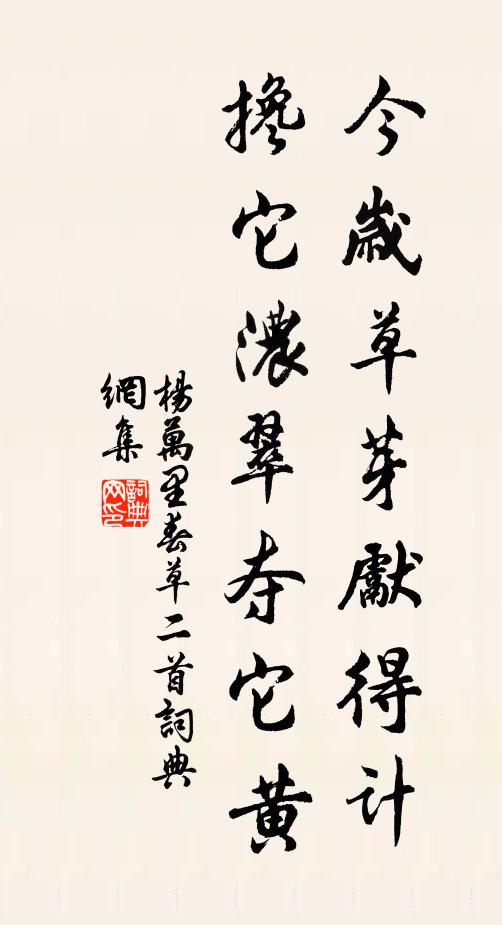 今歲草芽獻得計
攙它濃翠夺它黄
楊萬里春草二首詞典
網集
詞典
网印